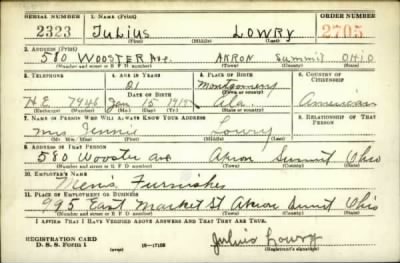 SERIAL NUMBER 1. NAME (Print) ORDER NUMBER
2323 JULIUS LOWRY 2705
(First) (Middle) (Last)
2. ADDRESS (Print)
580 WOOSTER Ave. AKRON Summit OHIO
(Number and street or R. F. D. number) (Town) (County) (State)
3. TELEPHONE 4. AGE IN YEARS 5. PLACE OF BIRTH 6. COUNTRY OF CITIZENSHIP
Montgomery
(Town or county)
DATE OF BIRTH
HE 7946 Jan 15 Ala. American
(Exchange) (Number) (Mo.) (Day) (Yr.) (State or country)
7. NAME OF PERSON WHO WILL ALWAYS KNOW YOUR ADDRESS 8. RELATIONSHIP OF THAT PERSON
Mrs Jennie Lowry
(Mr., Mrs., Miss) (First) (Middle) (Last)
9. ADDRESS OF THAT PERSON
580 Wooster ave Akron Summit Ohio
(Number and street or R. F. D. number) (Town) (County) (State)
10. EMPLOYER'S NAME
Mens Furnisher
11. PLACE OF EMPLOYMENT OR BUSINESS
995 East Market St Akron Ohio
(Number and street or R. F. D. number) (Town) (County) (State)
I AFFIRM THAT I HAVE VERIFIED ABOVE ANSWERS AND THAT THEY ARE TRUE.
REGISTRATION CARD
D. S. S. Form 1 (over) 16-17105
Julius Lowry
(Registrant's signature)